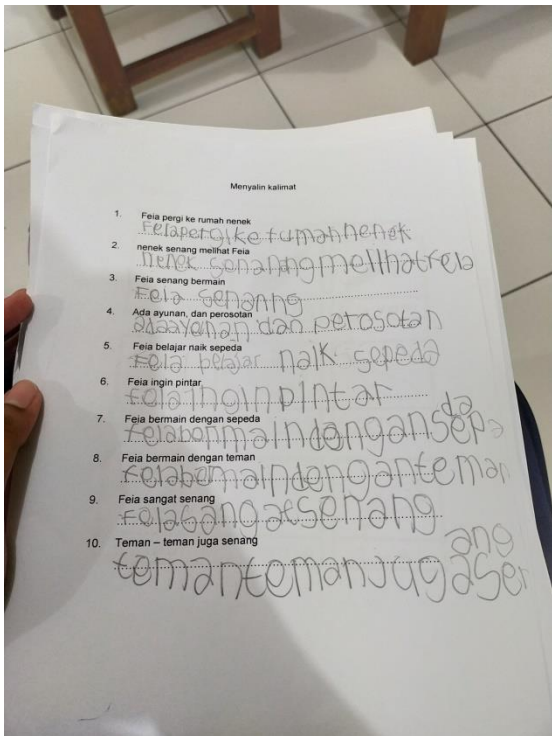 Menyalin kalimat
1. Feia pergi ke rumah nenek
Felapergike rumahnenek
2. nenek senang melihat Feia
nenek senanang melihatFela
3. Feia senang bermain
Fela senanng
4. Ada ayunan, dan perosotan
adaayunan dan perosotan
5. Feia belajar naik sepeda
Fela belajar naik sepeda
6. Feia ingin pintar
Felaingin pintar
7. Feia bermain dengan sepeda
da
Felabonmaindangansepa
8. Feia bermain dengan teman
Felabemaindenganteman
9. Feia sangat senang
10. Teman – teman juga senang
ang
temantemanjugasen